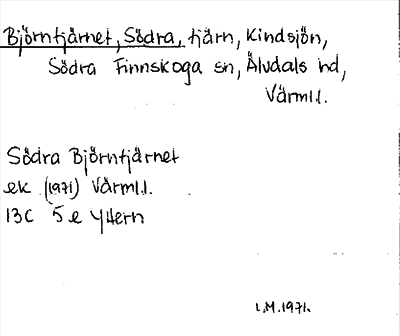 Björntjärnet, Södra, tjärn, Kindsjön,
Södra Finnskoga sn, Älvdals hd,
Värml.l.
Södra Björntjärnet
ek (1971) Värml.l.
13C 5e Yttern
I.M.1971.